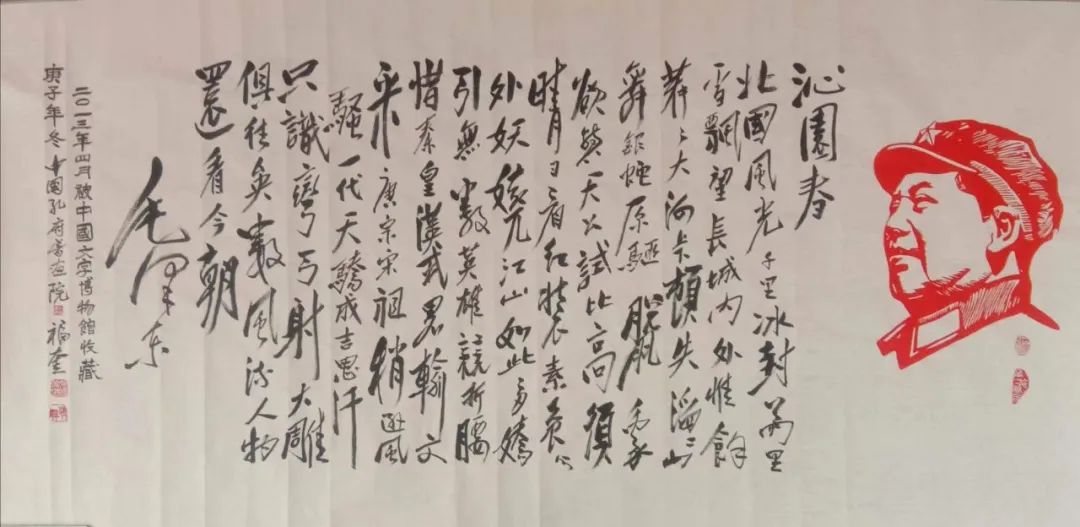 沁園春
北國風光千里冰封萬里
雪飄望長城内外惟餘
莽〻大河上下頓失滔〻山
舞銀蛇原驅臘象
欲與天公試比高須
晴日看紅裝素裹分
外妖嬈江山如此多嬌
引無數英雄競折腰
惜秦皇漢武畧輸文
采唐宗宋祖稍遜風
騷一代天驕成吉思汗
只識彎弓射大雕
俱往矣數風流人物
還看今朝
毛澤東
二〇一三年四月被中國文字博物館收藏
庚子年冬中國孔府書画院福奎